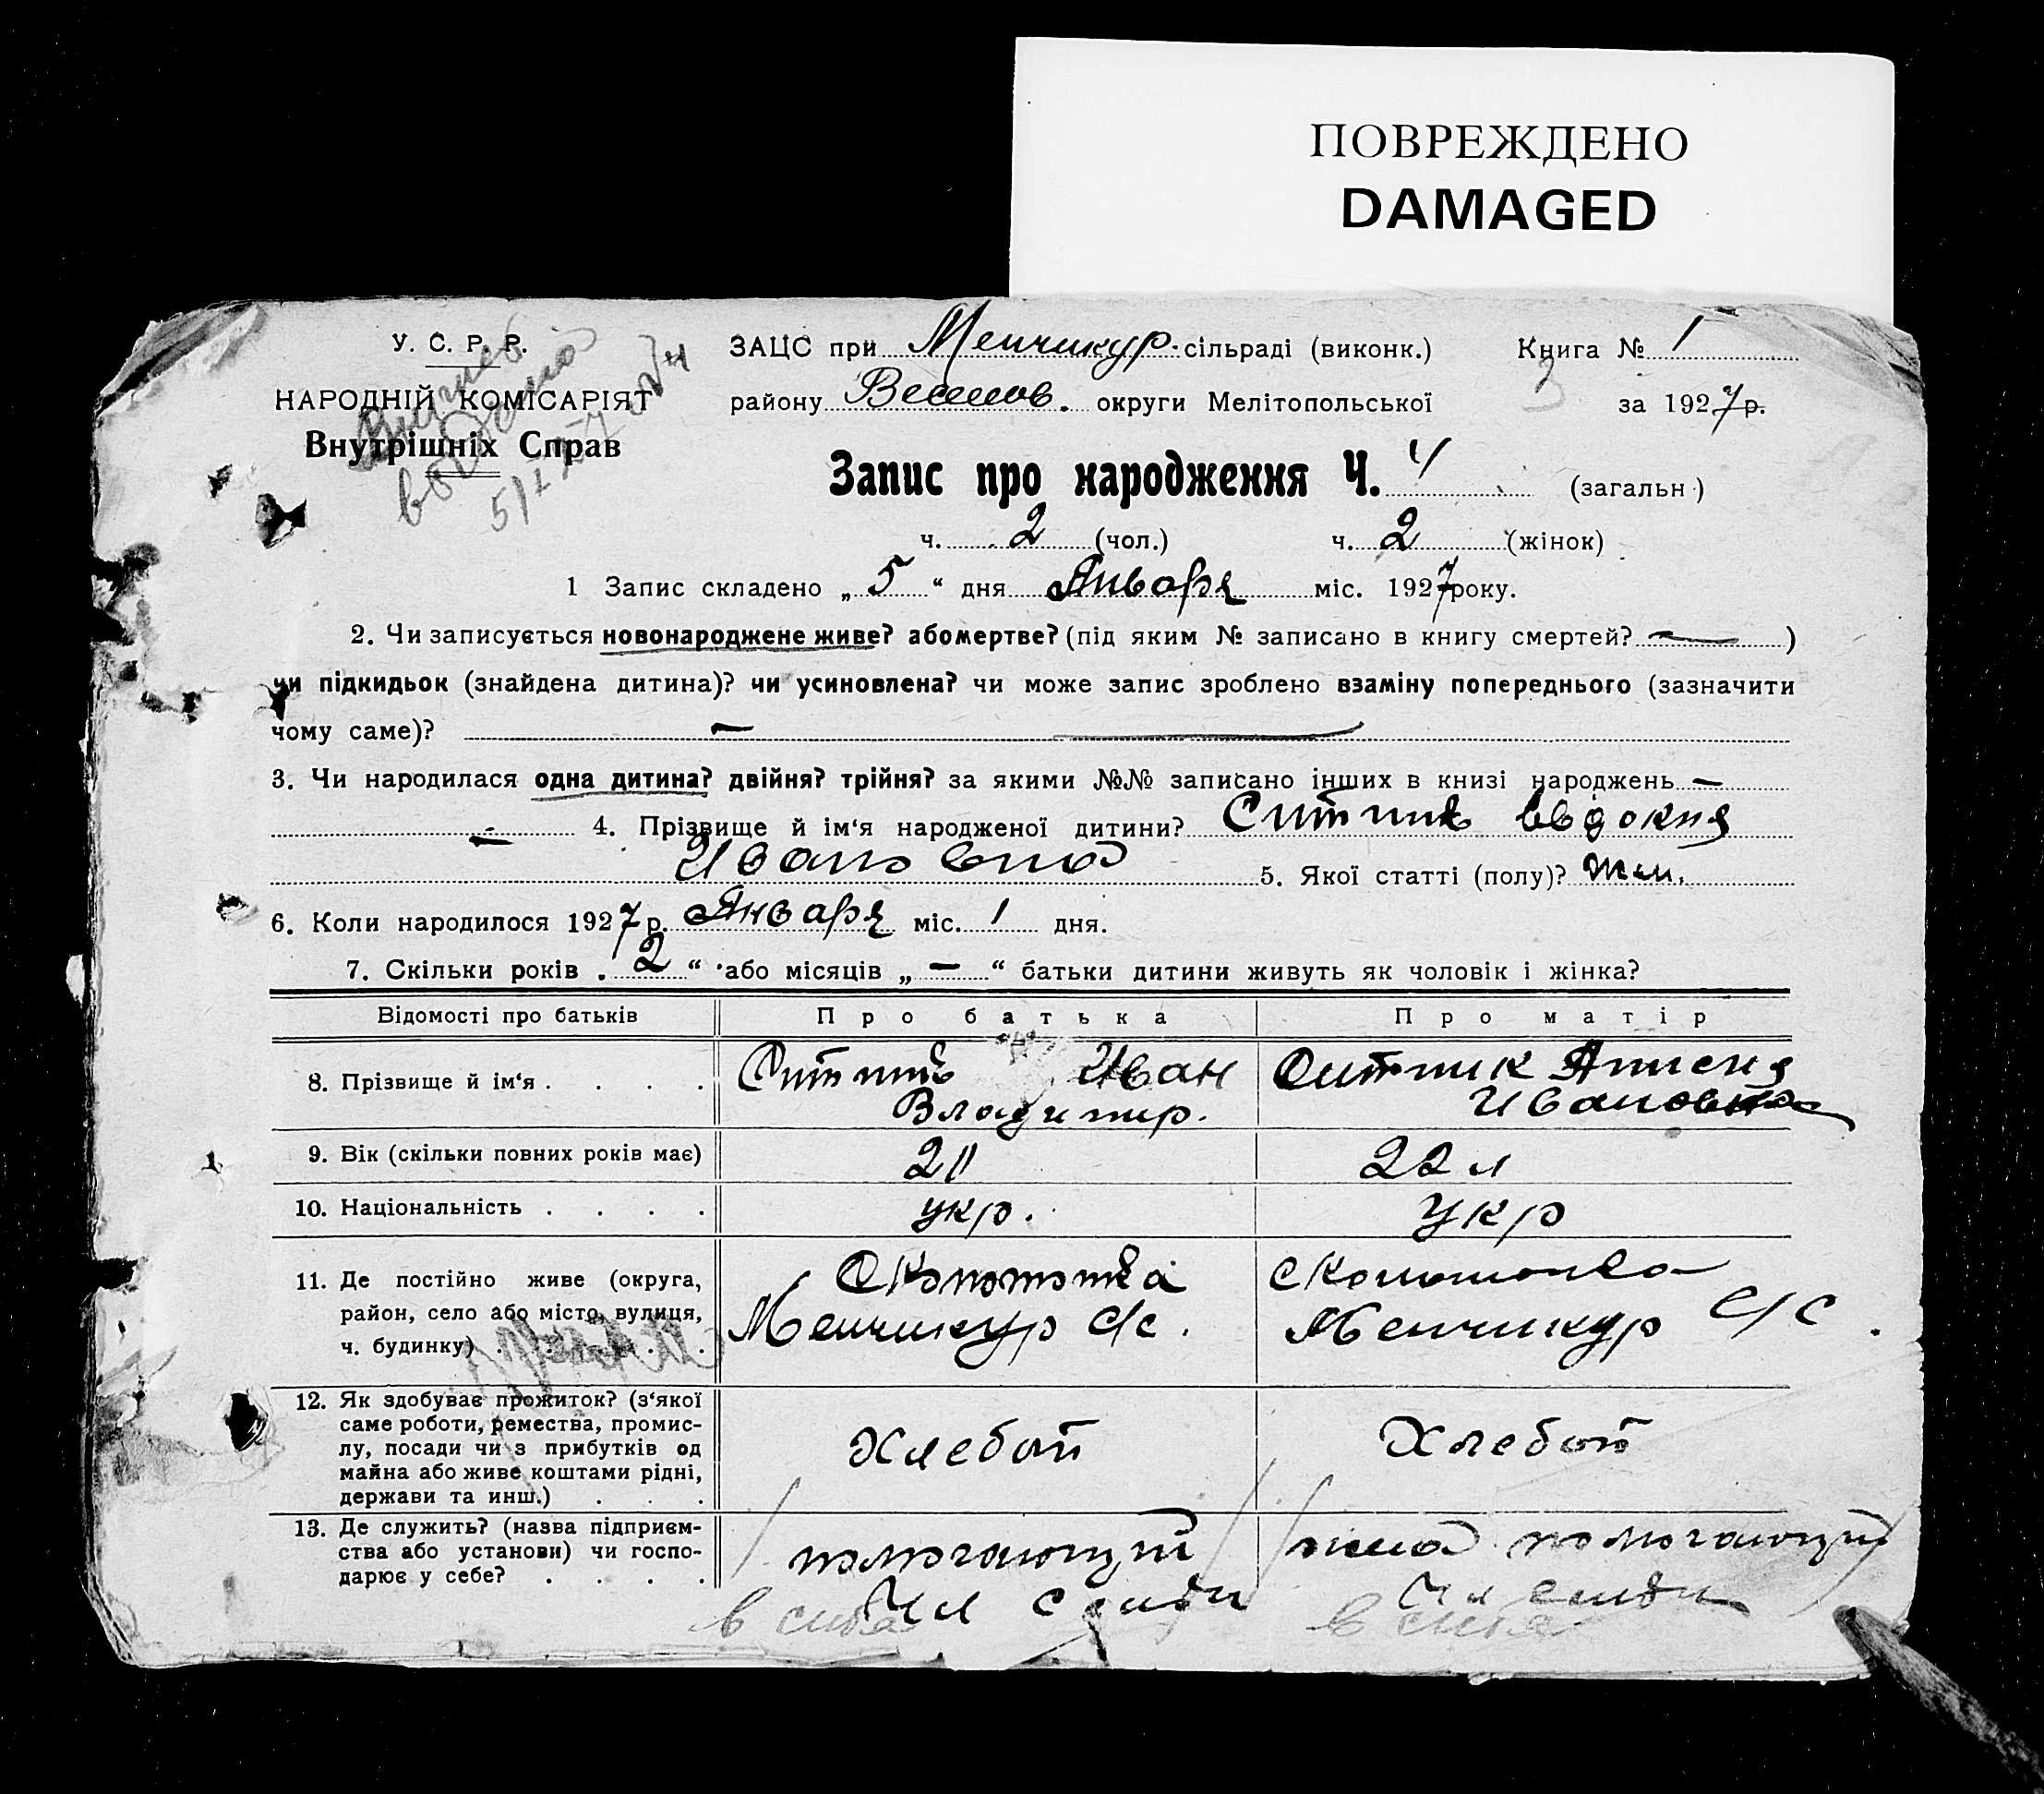 ПОВРЕЖДЕНО
DAMAGED
У. С. Р. Р.
НАРОДНІЙ КОМІСАРІЯТ
Внутрішніх Справ
ЗАЦС при Менчикур. сільраді (виконк.) Книга № 1
району Веселов. округи Мелітопольської 3 за 1927 р.
Запис про народження Ч. 4 (загальн.)
ч. 2 (чол.) ч. 2 (жінок)
1 Запис складено „ 5 “ дня Января міс. 1927 року.
2. Чи записується новонароджене живе? або мертве? (під яким № записано в книгу смертей? — )
чи підкидьок (знайдена дитина)? чи усиновлена? чи може запис зроблено взаміну попереднього (зазначити
чому саме)? —
3. Чи народилася одна дитина? двійня? трійня? за якими №№ записано інших в книзі народжень —
— 4. Прізвище й ім‘я народженої дитини? Ситник Евдокия
Ивановна 5. Якої статті (полу)? жен.
6. Коли народилося 1927 р. Января міс. 1 дня.
7. Скільки років „ 2 “ або місяців „ — “ батьки дитини живуть як чоловік і жінка?
Відомості про батьків Про батька Про матір
8. Прізвище й ім‘я . . . . Ситник Иван Ситник
Владимир. Ивановна
9. Вік (скільки повних років має) 21 22 л
10. Національність . . . . укр. укр
11. Де постійно живе (округа,
район, село або місто, вулиця,
ч. будинку) . . . .
Менчикур с/с. Менчикур с/с.
12. Як здобуває прожиток? (з‘якої
саме роботи, ремества, промис-
лу, посади чи з прибутків од
майна або живе коштами рідні,
держави та инш.) . . .
Хлебоп Хлебоп
13. Де служить? (назва підприєм-
ства або установи) чи госпо-
дарює у себе? . . . .
помогающий жена помогающий